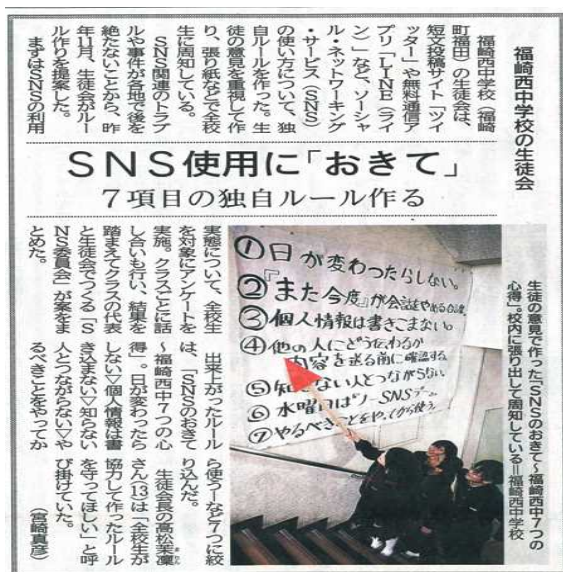 福崎西中学校の生徒会
SNS使用に「おきて」
7項目の独自ルール作る
福崎西中学校(福崎
町福田)の生徒会は、
短文投稿サイト「ツイ
ッター」や無料通信ア
プリ「LINE(ライ
ン)」など、ソーシャ
ル・ネットワーキング
・サービス(SNS)
の使い方について、独
自ルールを作った。生
徒の意見を重視して作
り、張り紙などで全校
生に周知している。
SNS関連のトラブ
ルや事件が各地で後を
絶たないことから、昨
年11月、生徒会がルー
ル作りを提案した。
まずはSNSの利用
実態について、全校生
を対象にアンケートを
実施。クラスごとに話
し合いも行い、結果を
踏まえてクラスの代表
と生徒会でつくる「S
NS委員会」が案をま
とめた。
出来上がったルール
は、「SNSのおきて
~福崎西中7つの心
得」。日が変わったら
しない▽個人情報は書
き込まない▽知らない
人とつながらない▽や
るべきことをやってか
ら使う―など7つに絞
り込んだ。
生徒会長の高松茉凜
さん(13)は「全校生が
協力して作ったルール
を守ってほしい」と呼
び掛けていた。
(宮崎真彦)
生徒の意見で作った「SNSのおきて~福崎西中7つの
心得」。校内に張り出して周知している=福崎西中学校
①日が変わったらしない。
②『また今度』が会話をやめる合言葉
③個人情報は書きこまない。
④他の人にどう伝わるか
内容を送る前に確認する
⑤知らない人とつながらない
⑥水曜日は"ノーSNSデー"
⑦やるべきことをやってから使う